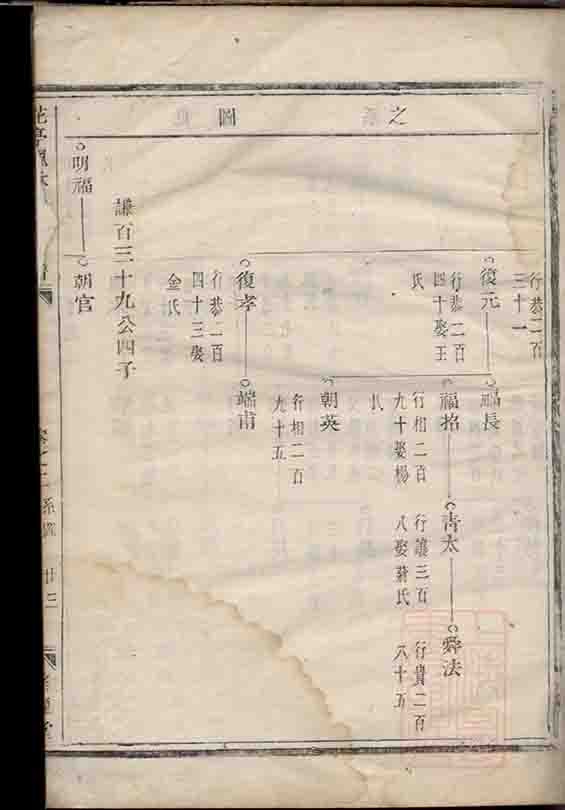 之圖
行恭二百
三十一
復元
行恭二百
四十娶王
氏
福長
福招
行相二百
九十娶楊
氏
青太
行讓三百
八娶蔣氏
舜法
行貴二百
八十五
朝英
行相二百
九十五
復孝
行恭二百
四十三娶
金氏
端甫
謙百三十九公四子
明福
朝官
系
廿三